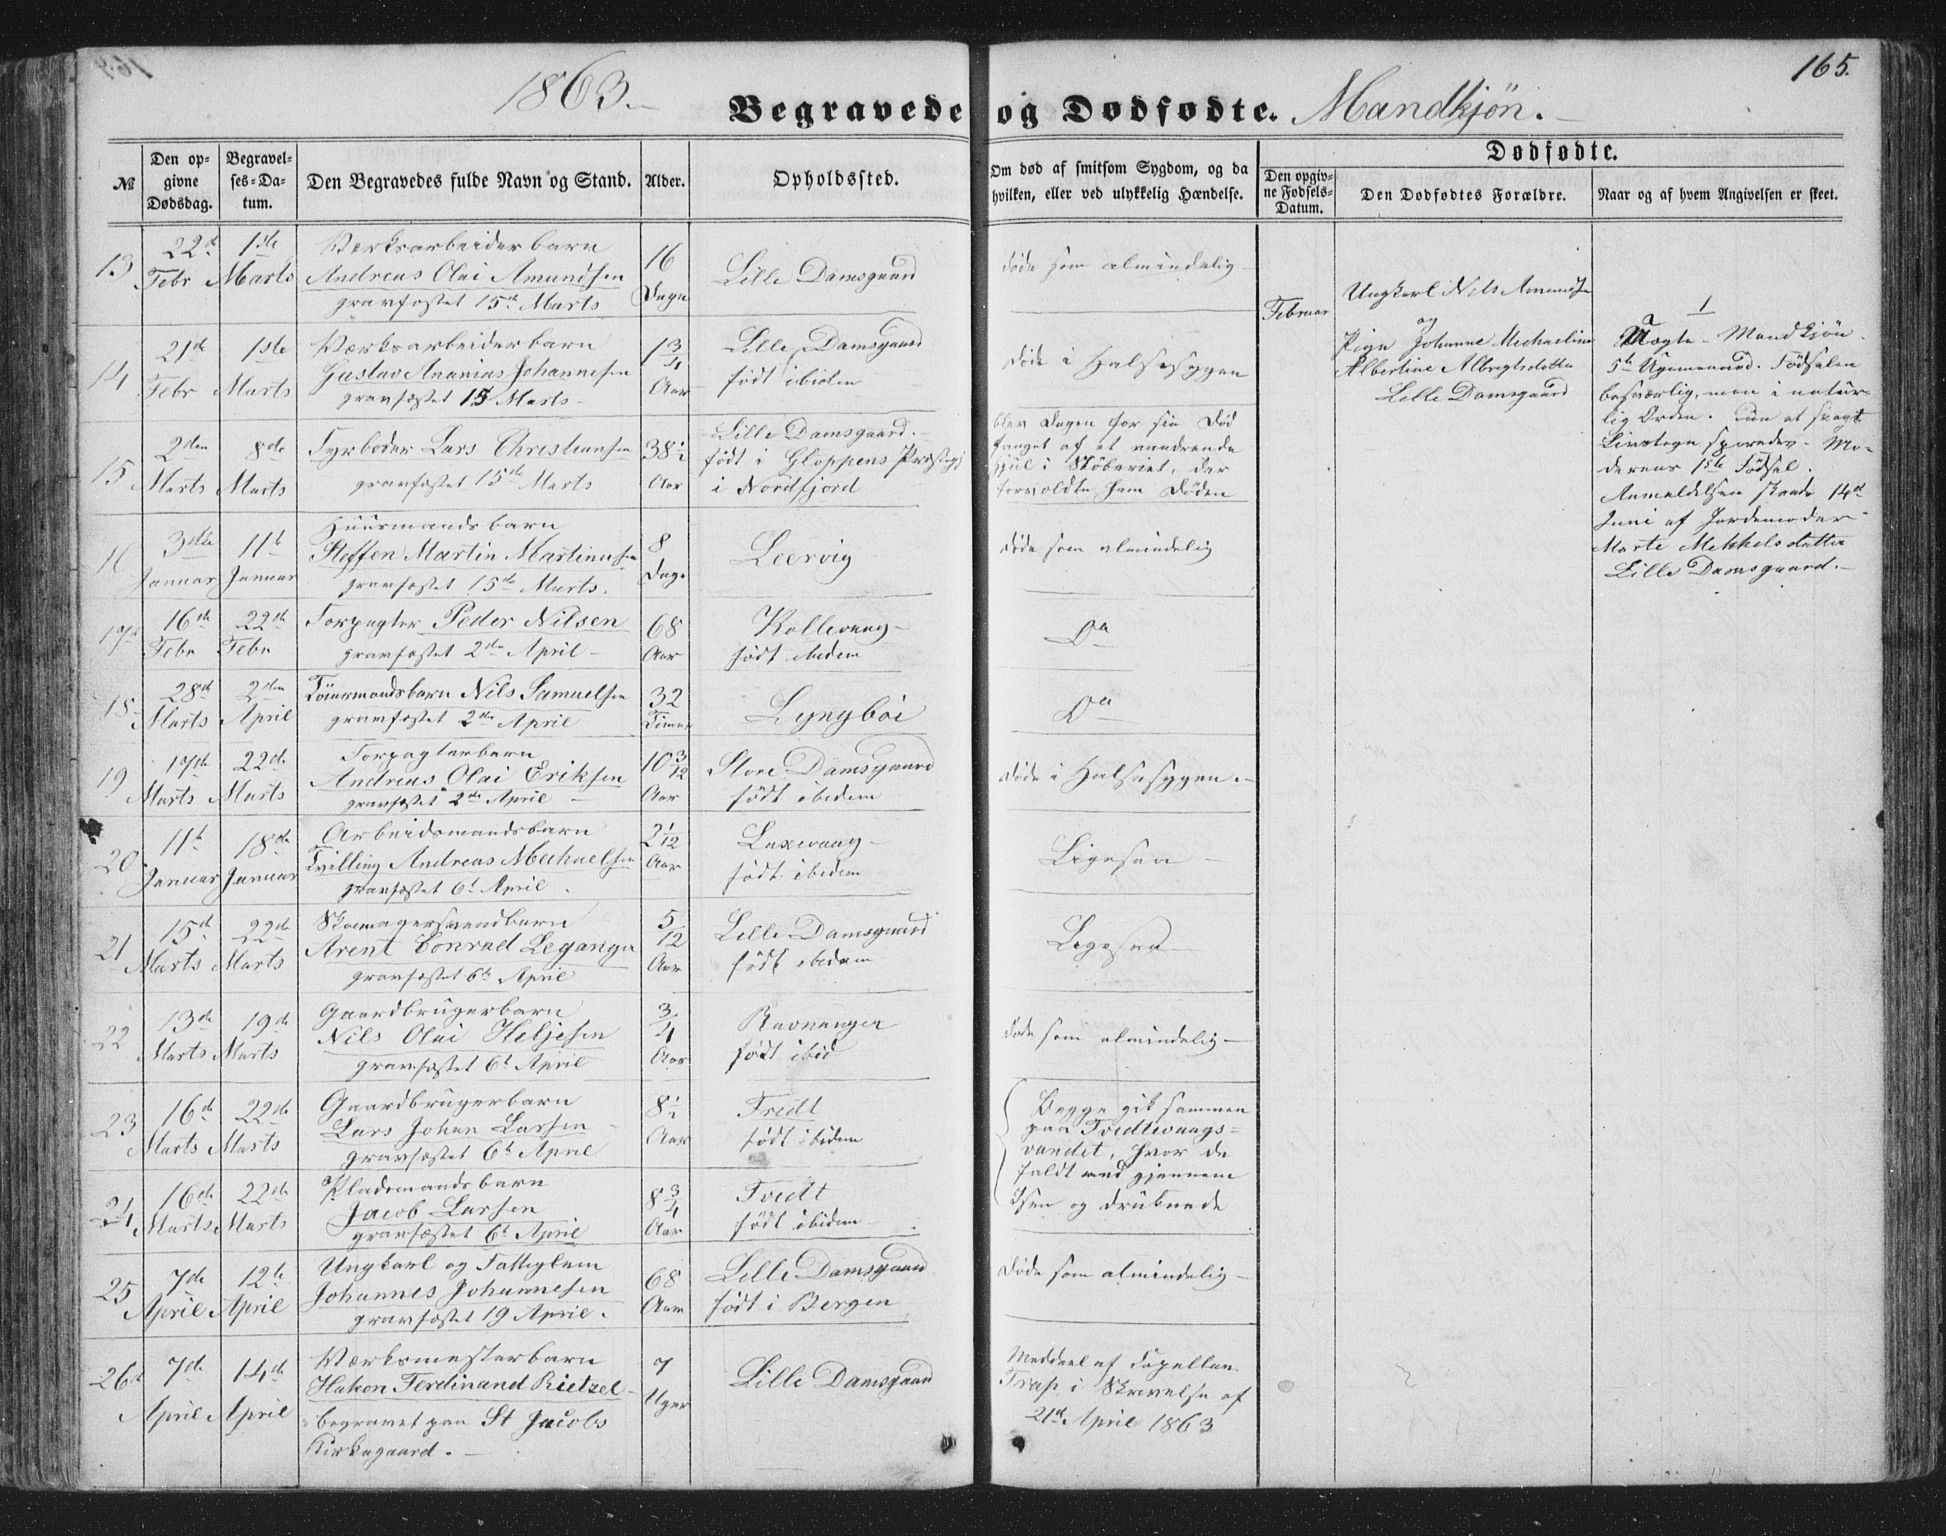 1863.
165.
Begravede og Dødfødte. Mandkjön.
№
Den opgivne Dødsdag.
Begravelses-Datum.
Den Begravedes fulde Navn og Stand.
Alder.
Opholdssted.
Om død af smitsom Sygdom, og da hvilken, eller ved ulykkelig Hændelse.
Dødfødte.
Den opgivne Fødsels-Datum.
Den Dødfødtes Forældre.
Naar og af hvem Angivelsen er skeet.
13
22d Febr
1ste Marts
Værksarbeider barn
Andreas Olai Amundsen
gravfæstet 15de Marts
16 Dage
Lille Damsgaard
døde som almindelig
14
21de Febr
1ste Marts
Værksarbeiderbarn
Gustav Ananias Johannesen
gravfæstet 15 Marts
1 3/4 Aar
Lille Damsgaard
født ibidem
døde i Halsesygen
15
2den Marts
8de Marts
Fyrbøder Lars Christiansen
gravfæstet 15de Marts
38 1/2 Aar
Lille Damsgaard.
født i Gloppens Præstegj
i Nordfjord
blev Dagen før sin Død
fanget af et vandrende
Hjul i Støberiet, der
forvoldte ham Døden
16
3die Januar
11te Januar
Huusmandsbarn
Steffen Martin Martinusen
gravfæstet 15de Marts.
8 Dage
Leervig
døde som almindelig
17
16de Febr
22de Febr
Forpagter Peder Nilsen
gravfæstet 2den April
68 Aar
Kollevaag
født ibidem
Do
18
28de Marts
2den April
Nils Samuelsen
gravfæstet 2den April
32 Timer
Lyngbøi
Do
19
17de Marts
22de Marts
Forpagterbarn
Andreas Olai Eriksen
gravfæstet 2de April
10 3/12 Aar
Store Damsgaard
født ibidem
døde i Halsesygen.
20
11te Januar
18de Januar
Arbeidsmandsbarn
Tvilling Andreas Michaelsen
gravfæstet 6t April.
2 1/12 Aar
Laxevaag
født ibidem
Ligesaa
21
15de Marts
22de Marts
Skomagersvendbarn
Arent Conrad Leganger
gravfæstet 6te April
5/12 Aar
Lille Damsgaard
født ibidem
Ligesaa
22
13de Marts
19de Marts
Gaardbrugerbarn
Nils Olai Heljesen
gravfæstet 6t April
3/4 Aar
Ravnanger
født ibid
døde som almindelig
23
16de Marts
22de Marts
Gaardbrugerbarn
Lars Johan Larsen
gravfæstet 6t April
8 1/2 Aar
Tvedt
født ibidem
Begge gik sammen
paa Tvedtevaags-
vandet, hvor de
faldt ned gjennem
Isen og druknede
24
16de Marts
22de Marts
Pladsmandsbarn
Jacob Larsen
gravfæstet 6t April
8 3/4 Aar
Tvedt
født ibidem
25
7de April
12te April
Ungkarl og Fattiglem
Johannes Johannesen
gravfæstet 19 April.
68 Aar
Lille Damsgaard
født i Bergen
døde som almindelig
26
7de April
14de April
Værksmesterbarn
Hakon Ferdinand Rietzel
begravet paa St Jacobs
Kirkegaard.
7 Uger
Lille Damsgaard
Meddeel af Capellan
Trap i Skrivelse af
21de April 1863
Februar
Ungkarl Nils Amundsen
og
Pige Johanne Michaeline
Albertine Albregtsdatter
Lille Damsgaard
1
Uægte Mandkjön.
5te Ugemaaned. Fødselen
besværlig, men i natur-
lig Orden. Kun et svagt
Livstegn sporedes. Mo-
derens 1ste Fødsel.
Anmeldelsen skeede 14de
Juni af Jordemoder
Marte Mekkelsdatter
Lille Damsgaard.